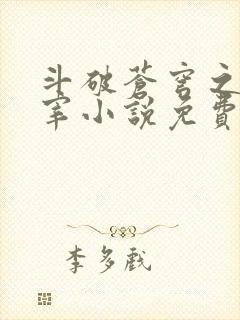 斗破蒼穹之
宰小說免費
李多戲